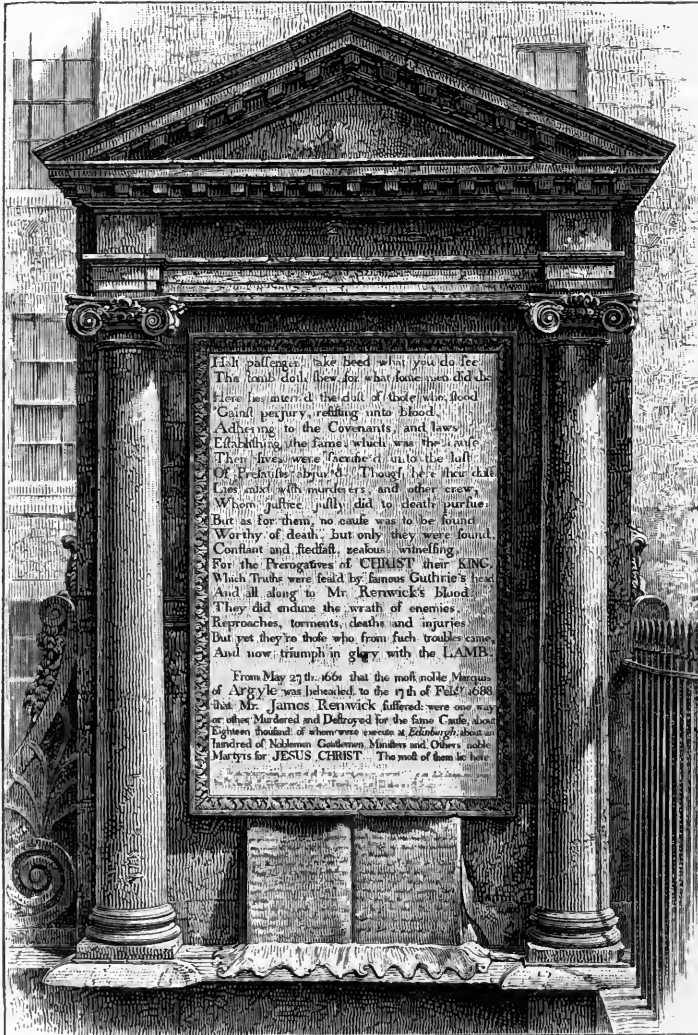 Halt passenger, take heed what you do see
This tomb doth shew, for what some men did die
Here lies interr'd the dust of those who stood
'Gainst perjury, resisting unto blood,
Adhering to the Covenants, and laws
Establishing the same: which was the cause
Their lives were sacrific'd unto the lust
Of Prelatists abjur'd. Though here their dust
Lies mixt with murderers, and other crew,
Whom justice justly did to death pursue:
But as for them, no cause was to be found
Worthy of death, but only they were found,
Constant and stedfast, zealous, witnessing,
For the Prerogatives of CHRIST their KING,
Which Truths were seal'd by famous Guthrie's head
And all along to Mr. Renwick's Blood
They did endure the wrath of enemies
Reproaches, torments, deaths and injuries
But yet they're those who from such troubles came,
And now triumph in glory with the LAMB.
From May 27th. 1661 that the most noble Marquis
of Argyle was beheaded, to the 17th of Febry. 1688
that Mr. James Renwick suffered: were one way
or other Murdered and Destroyed for the same Cause, about
Eighteen thousand: of whom were execute at Edinburgh, about an
hundred of Noblemen Gentlemen, Ministers and Others noble
Martyrs for JESUS CHRIST The most of them lie here